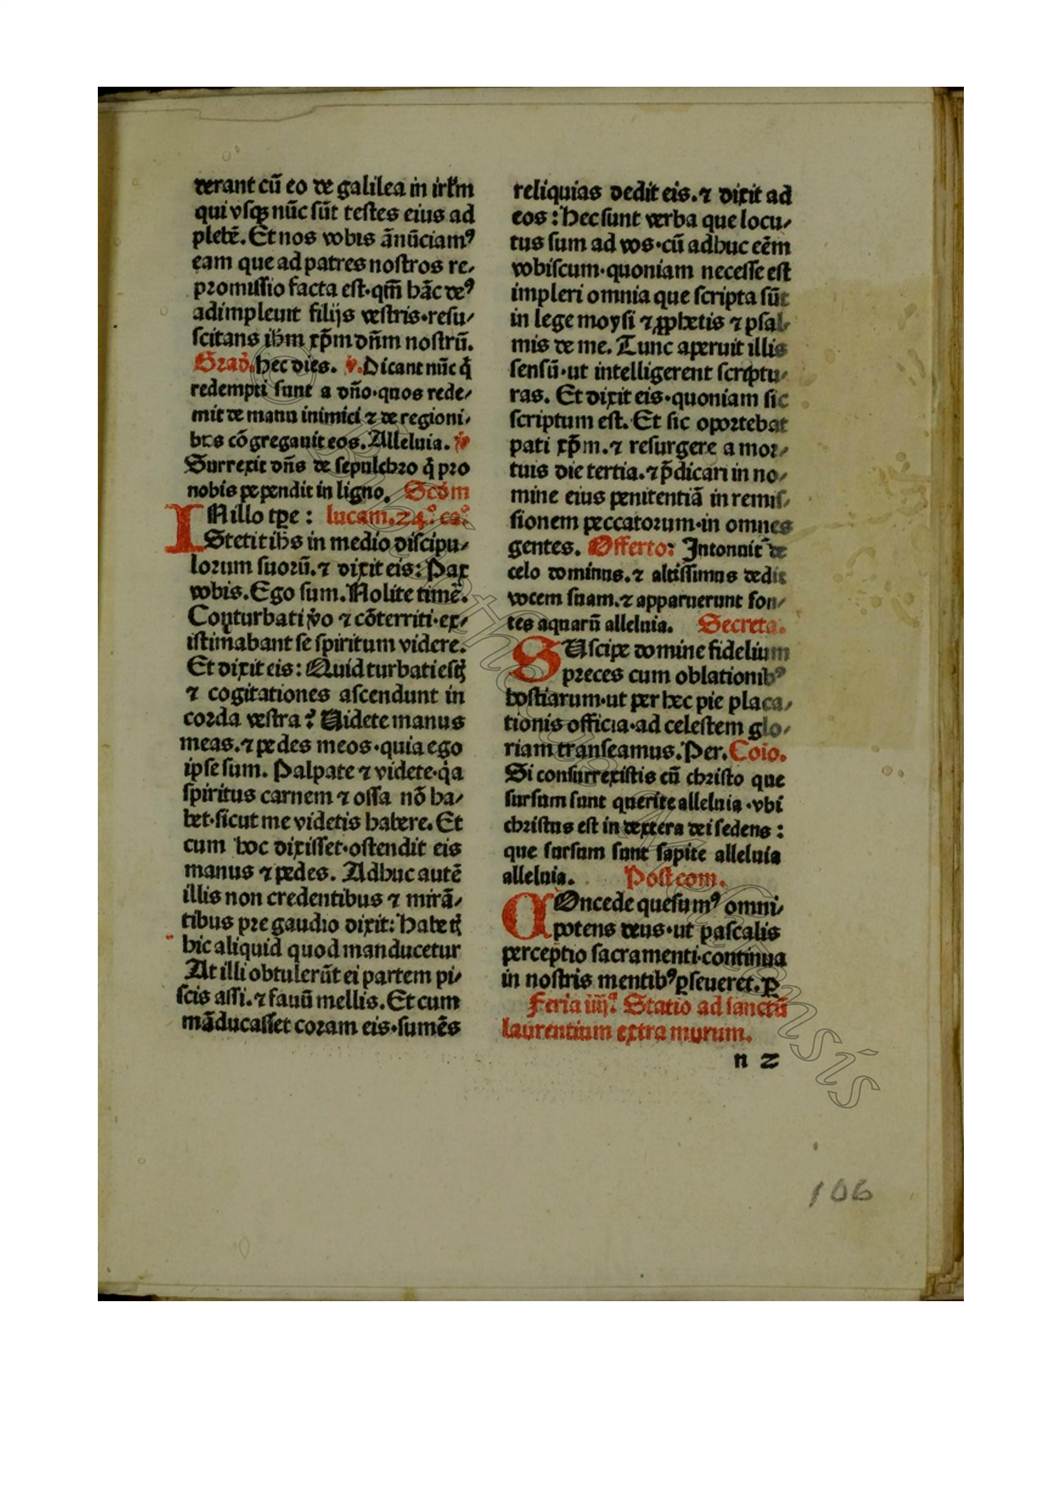 derant cũ eo de galilea in irlꝫm
qui vsqꝫ nũc sũt testes eius ad
plebẽ. Et nos vobis ãnũciamꝰ
eam que ad patres nostros re⸗
promissio facta est·qm̃ hãc deꝰ
adimpleuit filijs vestris·resu⸗
scitans ihm xp̃m dñm nostrũ.
Gradͦ. Hec dies. ℣. Dicant nũc q̃
redempti sunt a dño·quos rede⸗
mit de manu inimici ⁊ de regioni⸗
bus cõgregauit eos. Alleluia. ℣
Surrexit dñs de sepulchro q̃ pro
nobis pependit in ligno. Scd̃m
IN illo tꝑe : lucam. 24.º ca.º
Stetit ihs in medio discipu⸗
lorum suorũ.⁊ dixit eis: Pax
vobis. Ego sum. Nolite timẽ.
Conturbati v̊o ⁊ cõterriti·ex⸗
istimabant se spiritum videre.
Et dixit eis: Quid turbati estꝭ
⁊ cogitationes ascendunt in
corda vestra? Uidete manus
meas.⁊ pedes meos·quia ego
ipse sum. Palpate ⁊ videte·q̃a
spiritus carnem ⁊ ossa nõ ha⸗
bet·sicut me videtis habere. Et
cum hoc dixisset·ostendit eis
manus ⁊ pedes. Adhuc autẽ
illis non credentibus ⁊ mirã⸗
tibus pre gaudio dixit: habetꝭ
hic aliquid quod manducetur
At illi obtulerũt ei partem pi⸗
scis assi.⁊ fauũ mellis. Et cum
mãducasset coram eis·sumẽs
reliquias dedit eis.⁊ dixit ad
eos : Hec sunt verba que locu⸗
tus sum ad vos·cũ adhuc eẽm
vobiscum·quoniam necesse est
impleri omnia que scripta sũt
in lege moysi ⁊ ꝓphetis ⁊ psal⸗
mis de me. Tunc aperuit illis
sensũ·ut intelligerent scriptu⸗
ras. Et dixit eis·quoniam sic
scriptum est. Et sic oportebat
pati xp̃m.⁊ resurgere a mor⸗
tuis die tertia.⁊ p̃dicari in no⸗
mine eius penitentiã in remis⸗
sionem peccatorum·in omnes
gentes. Offerto: Intonuit de
celo dominus.⁊ altissimus dedit
vocem suam.⁊ apparuerunt fon⸗
tes aquarũ alleluia. Secreta.
SUscipe domine fidelium
preces cum oblationibꝰ
hostiarum·ut per hec pie placa⸗
tionis officia·ad celestem glo⸗
riam transeamus. Per. Coio.
Si consurrexistis cũ christo que
sursum sunt querite alleluia·vbi
christus est in dextera dei sedens :
que sursum sunt sapite alleluia
alleluia. Postcom.
COncede quesumꝰ omni⸗
potens deus·ut pascalis
perceptio sacramenti·continua
in nostris mentibꝰ ꝑseueret. ꝑ
Feria iiij.ª Statio ad sanctũ
laurentium extra murum.
n 2
106